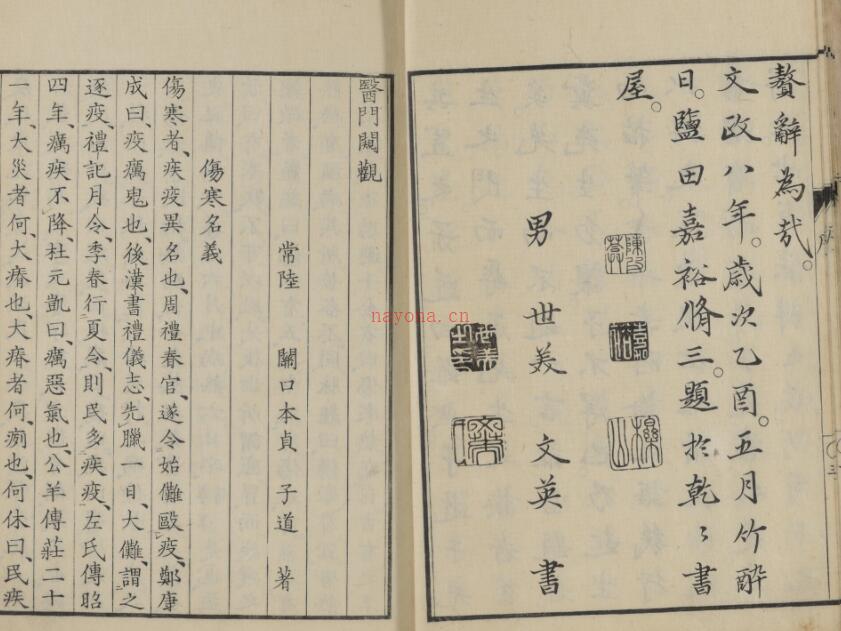 贅辭為哉。
文政八年。歲次乙酉。五月竹醉
日。鹽田嘉裕脩三。題於乾〻書
屋。
男 世美 文英 書
世美
nayona.cn
醫門闕觀
常陸 關口本貞 子道 著
傷寒名義
傷寒者、疾疫異名也、周禮春官、遂令始儺毆疫、鄭康
成曰、疫癘鬼也、後漢書禮儀志、先臘一日、大儺、謂之
逐疫、禮記月令、季春行夏令、則民多疾疫、左氏傳昭
四年、癘疾不降、杜元凱曰、癘惡氣也、公羊傳莊二十
年、大災者何、大瘠也、大瘠者何、㾐也、何休曰、民疾
三